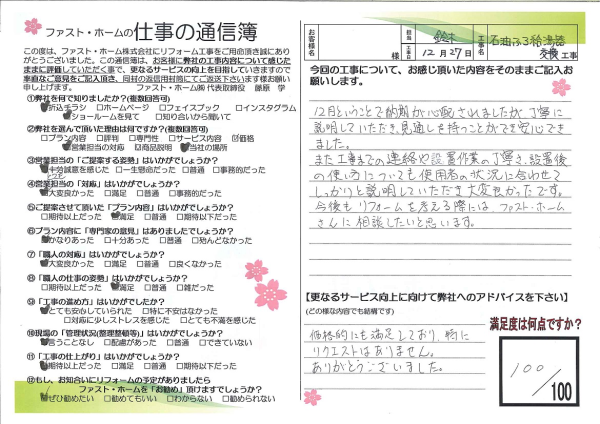 ファスト・ホームの仕事の通信簿
この度は、ファスト・ホーム株式会社にリフォーム工事をご用命頂き誠にあり
がとうございました。この通信簿は、お客様に弊社の工事内容について感じた
ままに評価していただく事で、更なるサービスの向上を目指していきますので
率直なご意見をご記入頂き、同封の返信用封筒にてご返送下さいます様お願い
申し上げます。 ファスト・ホーム㈱ 代表取締役 藤原 学
①弊社を何で知りましたか?(複数回答可)
折込チラシ □ホームページ □フェイスブック □インスタグラム
ショールームを見て □知り合いから聞いて
②弊社を選んで頂いた理由は何ですか?(複数回答可)
□プラン内容 □評判 □専門性 □サービス内容 ☑価格
営業担当の対応 ☑商品説明 当社の場所
③営業担当の「ご提案する姿勢」はいかがでしたか?
十分誠意を感じた □一生懸命だった □普通 □事務的だった
④営業担当の「対応」はいかがでしたか?
大変良かった □満足 □普通 □事務的だった
⑤ご提案させて頂いた「プラン内容」はいかがでしたか?
□期待以上だった 満足 □普通 □期待以下だった
⑥プラン内容に「専門家の意見」はありましたでしょうか?
かなりあった □十分あった □普通 □殆んどなかった
⑦「職人の対応」はいかがでしょうか?
大変良かった □満足 □普通 □良くなかった
⑧「職人の仕事の姿勢」はいかがでしょうか?
□期待以上だった 満足 □普通 □雑だった
⑨「工事の進め方」はいかがでしたか?
とても安心していられた □特に不安はなかった
□対応に少しストレスを感じた □とても不満を感じた
⑩現場の「管理状況(整理整頓等)」はいかがでしょうか?
言うことなし □配慮があった □普通 □できていない
⑪「工事の仕上がり」はいかがでしょうか?
期待以上だった □満足 □普通 □期待以下だった
⑫もし、お知合いにリフォームの予定がありましたら
ファスト・ホームを「お勧め」頂けますでしょうか?
ぜひ勧めたい □勧めてもいい □わからない □勧められない
お客様名 様
担当 鈴木
工事日 12月27日
工事名 石油ふろ給湯器
交換 工事
今回の工事について、お感じ頂いた内容をそのままご記入お
願いします。
12月ということで納期が心配されましたが丁寧に
説明していただき見通しを持つことができ安心でき
ました。
また工事までの連絡や設置作業の丁寧さ、設置後
の使い方についても使用者の状況に合わせて
しっかりと説明していただき大変良かったです。
今後もリフォームを考える際には、ファスト・ホーム
さんに相談したいと思います。
【更なるサービス向上に向けて弊社へのアドバイスを下さい】
(どの様な内容でも結構です)
価格的にも満足しており、特に
リクエストはありません。
ありがとうございました。
満足度は何点ですか?
100/100